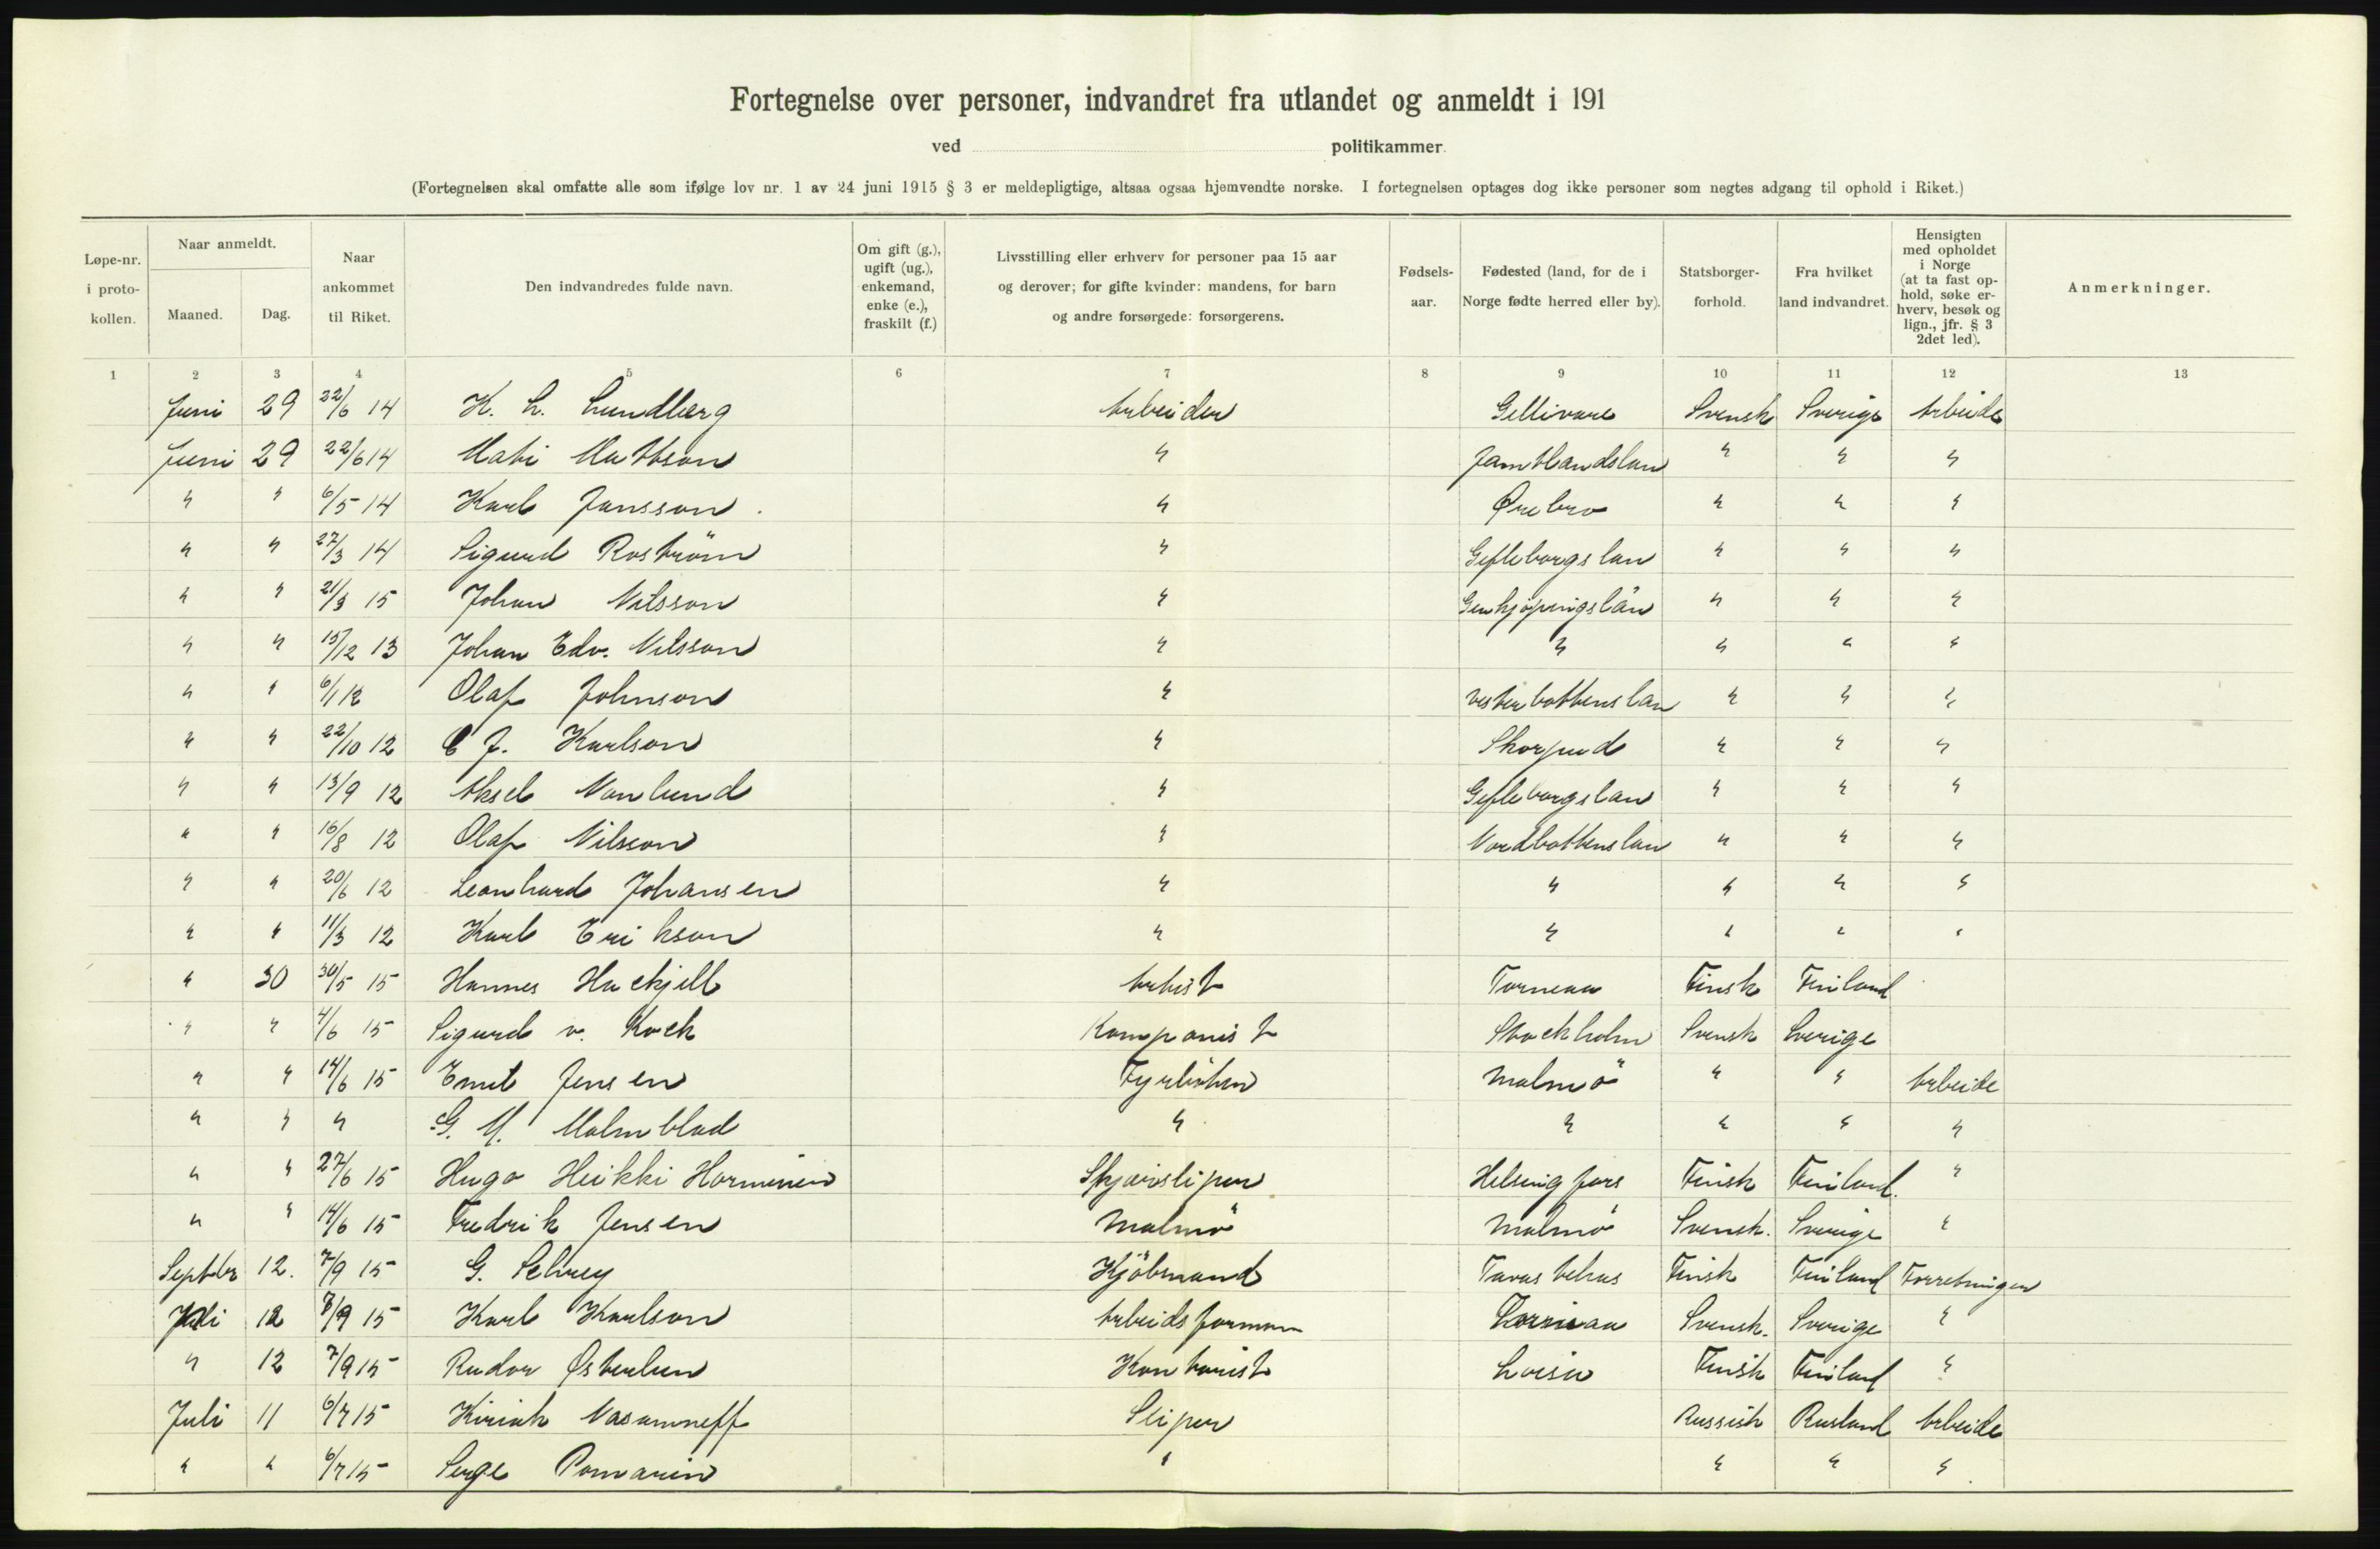 Fortegnelse over personer, indvandret fra utlandet og anmeldt i 191
ved politikammer.
(Fortegnelsen skal omfatte alle som ifølge lov nr. 1 av 24 juni 1915 § 3 er meldepligtige, altsaa ogsaa hjemvendte norske. I fortegnelsen optages dog ikke personer som negtes adgang til ophold i Riket.)
Løpe-nr. i proto- kollen. Naar anmeldt. Maaned. Dag. Naar ankommet til Riket. Den indvandredes fulde navn. Om gift (g.), ugift (ug.), enkemand, enke (e.), fraskilt (f.) Livsstilling eller erhverv for personer paa 15 aar og derover; for gifte kvinder: mandens, for barn og andre forsørgede: forsørgerens. Fødsels- aar. Fødested (land, for de i Norge fødte herred eller by). Statsborger- forhold. Fra hvilket land indvandret. Hensigten med opholdet i Norge (at ta fast op- hold, søke er- hverv, besøk og lign., jfr. § 3 2det led). Anmerkninger.
1 2 3 4 5 6 7 8 9 10 11 12 13
Juni 29 22/6 14 K. L. Lundberg Arbeider Gellivare Svensk Sverige Arbeide
Juni 29 22/6 14 Mati Mattson " Jamtlandslan " " "
" " 6/5 14 Karl Jansson " Ørebro " " "
" " 27/3 14 Sigurd Roström " Gefleborgslan " " "
" " 21/3 15 Johan Nilsson " Genkjøpingslän " " "
" " 15/12 13 Johan Edv. Nilsson " " " " "
" " 6/1 12 Olaf Johnson " Vesterbottenslan " " "
" " 22/10 12 C J. Karlson " " " "
" " 13/9 12 Aksel Nonlund " Gefleborgslan " " "
" " 16/8 12 Olaf Nilsson " Nordbottenslan " " "
" " 20/6 12 Leonhard Johansen " " " " "
" " 11/3 12 Karl Erikson " " " " "
" 30 30/5 15 Hannes Hackjell Artist Torneaa Finsk Finland
" " 4/6 15 Sigurd v. Koch Komponist Stockholm Svensk Sverige
" " 14/6 15 Emil Jensen Fyrbøter Malmö " " Arbeide
" " " G. M. Malmblad " " " " "
" " 27/6 15 Hugo Heikki Horminen Skjærsliper Helsingfors Finsk Finland. "
" " 14/6 15 Fredrik Jensen Malmö Malmö Svensk. Sverige "
Septbr 12. 7/9 15 G. Selvey Kjöbmand Tavastehus Finsk Finland Forretninger
Juli 12 7/9 15 Karl Karlson Arbeidsforman Svensk. Sverige "
" 12 7/9 15 Rudor Østerlun Kontorist Loisa Finsk Finland "
Juli 11 6/7 15 Kiriak Nasamneff Sliper Russisk Rusland Arbeide
" " 6/7 15 Serge Pomarin " " " "